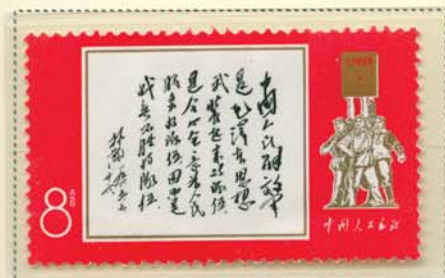 中国人民解放军
是毛泽东思想
武装起来的队伍,
是全心全意为人民
服务的队伍,因而是
战无不胜的队伍.
林彪
8
中国人民邮政